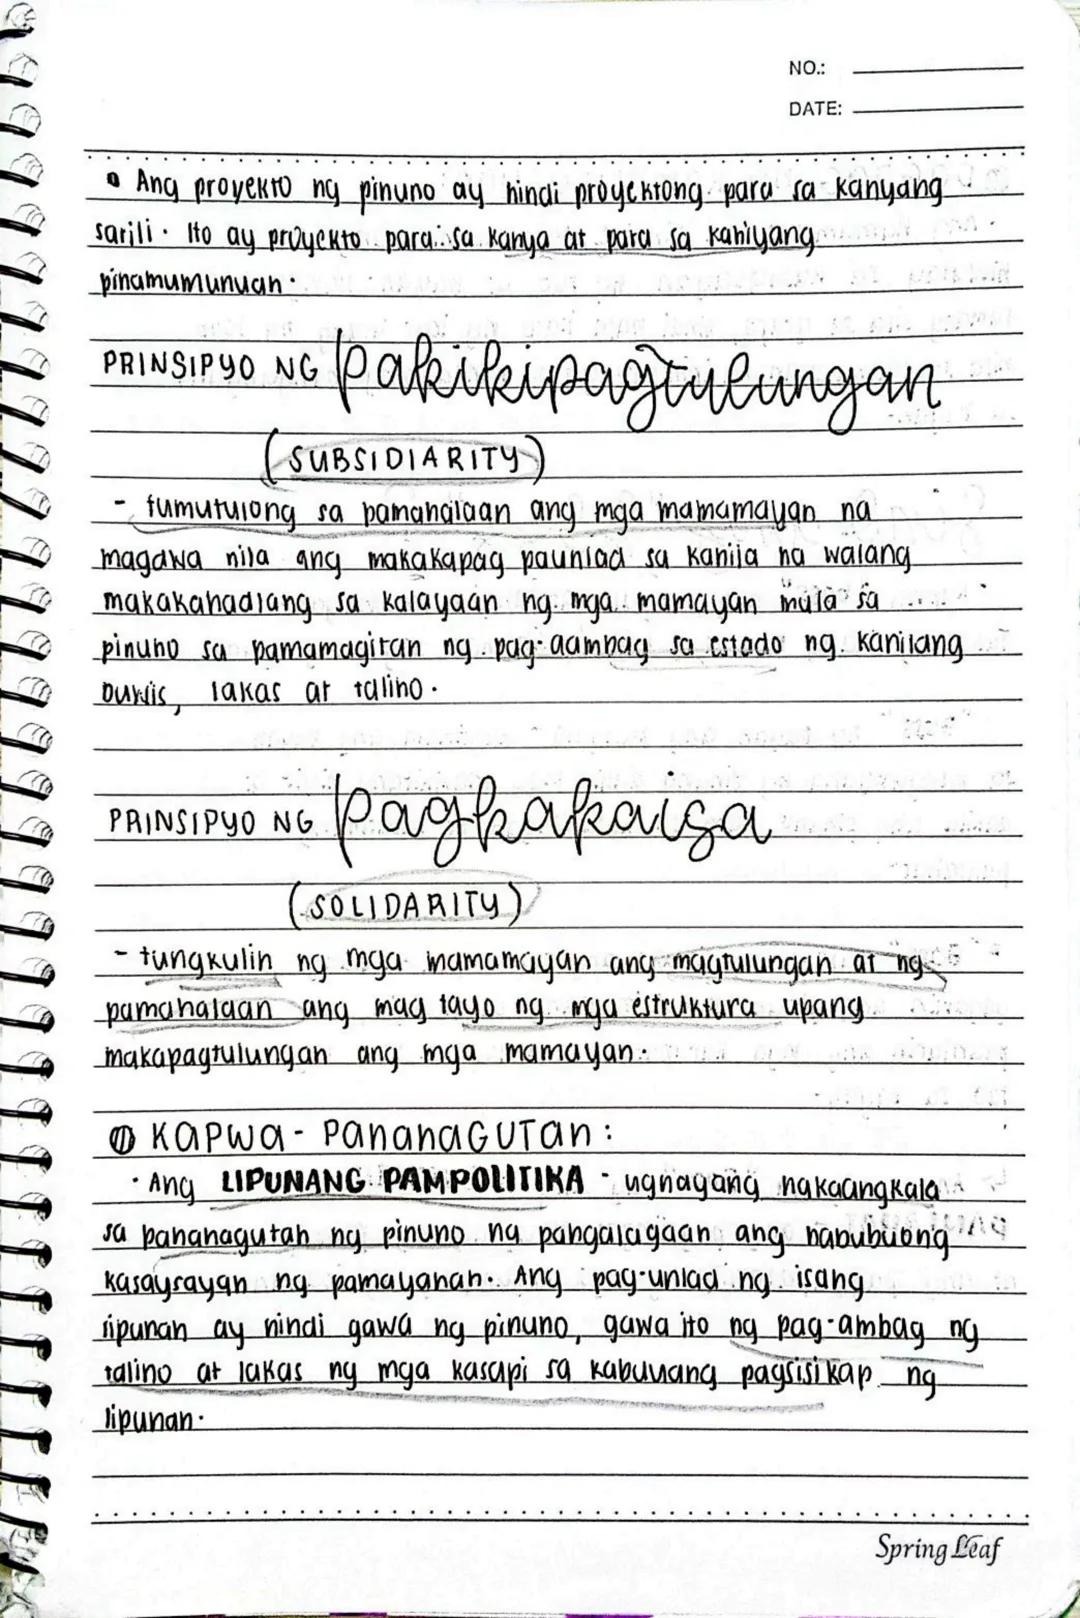 NO.:
DATE:
Ang proyekto ng pinuno ay hindi proyektong para sa kanyang
sarili. Ito ay proyekto para sa kanya at para sa kaniyang
pinamumunuan.
PRINSIPYO NG Pakikipagtulungan
(SUBSIDIARITY)
- tumutulong sa pamahalaan ang mga mamamayan na
magawa nila ang makakapag paunlad sa kanila na walang
makakahadlang sa kalayaan ng mga mamayan mula sa
pinuno sa pamamagitan ng pag-aambag sa estado ng kanilang
buwis, lakas at talino.
PRINSIPYO NG Pagkakaisa
(SOLIDARITY)
- tungkulin ng mga mamamayan ang magtulungan at ng
pamahalaan ang mag tayo ng mga estruktura upang
makapagtulungan ang mga mamayan.
KAPWA-PANANAGUTAN:
· Ang LIPUNANG PAMPOLITIKA - ugnayang nakaangkala
sa pananagutan ng pinuno na pangalagaan ang nabubuong
kasaysayan ng pamayanan. Ang pag-unlad ng isang
lipunan ay hindi gawa ng pinuno, gawa ito ng pag-ambag ng
talino at lakas ng mga kasapi sa kabuuang pagsisikap ng
lipunan.
Spring Leaf